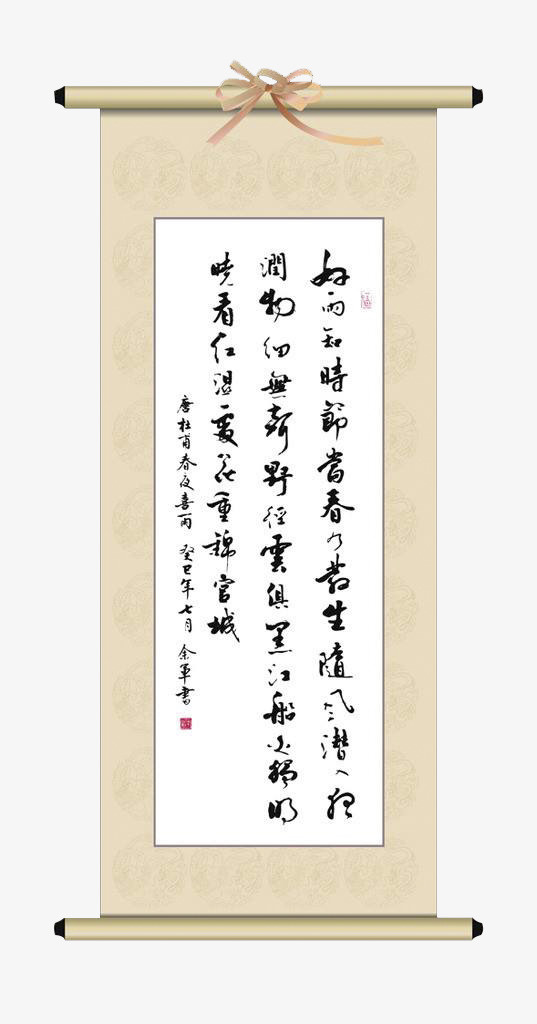 好雨知時節當春乃發生隨風潛入夜
潤物細無聲野徑雲俱黑江船火獨明
曉看紅濕處花重錦官城
唐杜甫春夜喜雨 癸巳年七月 余軍書